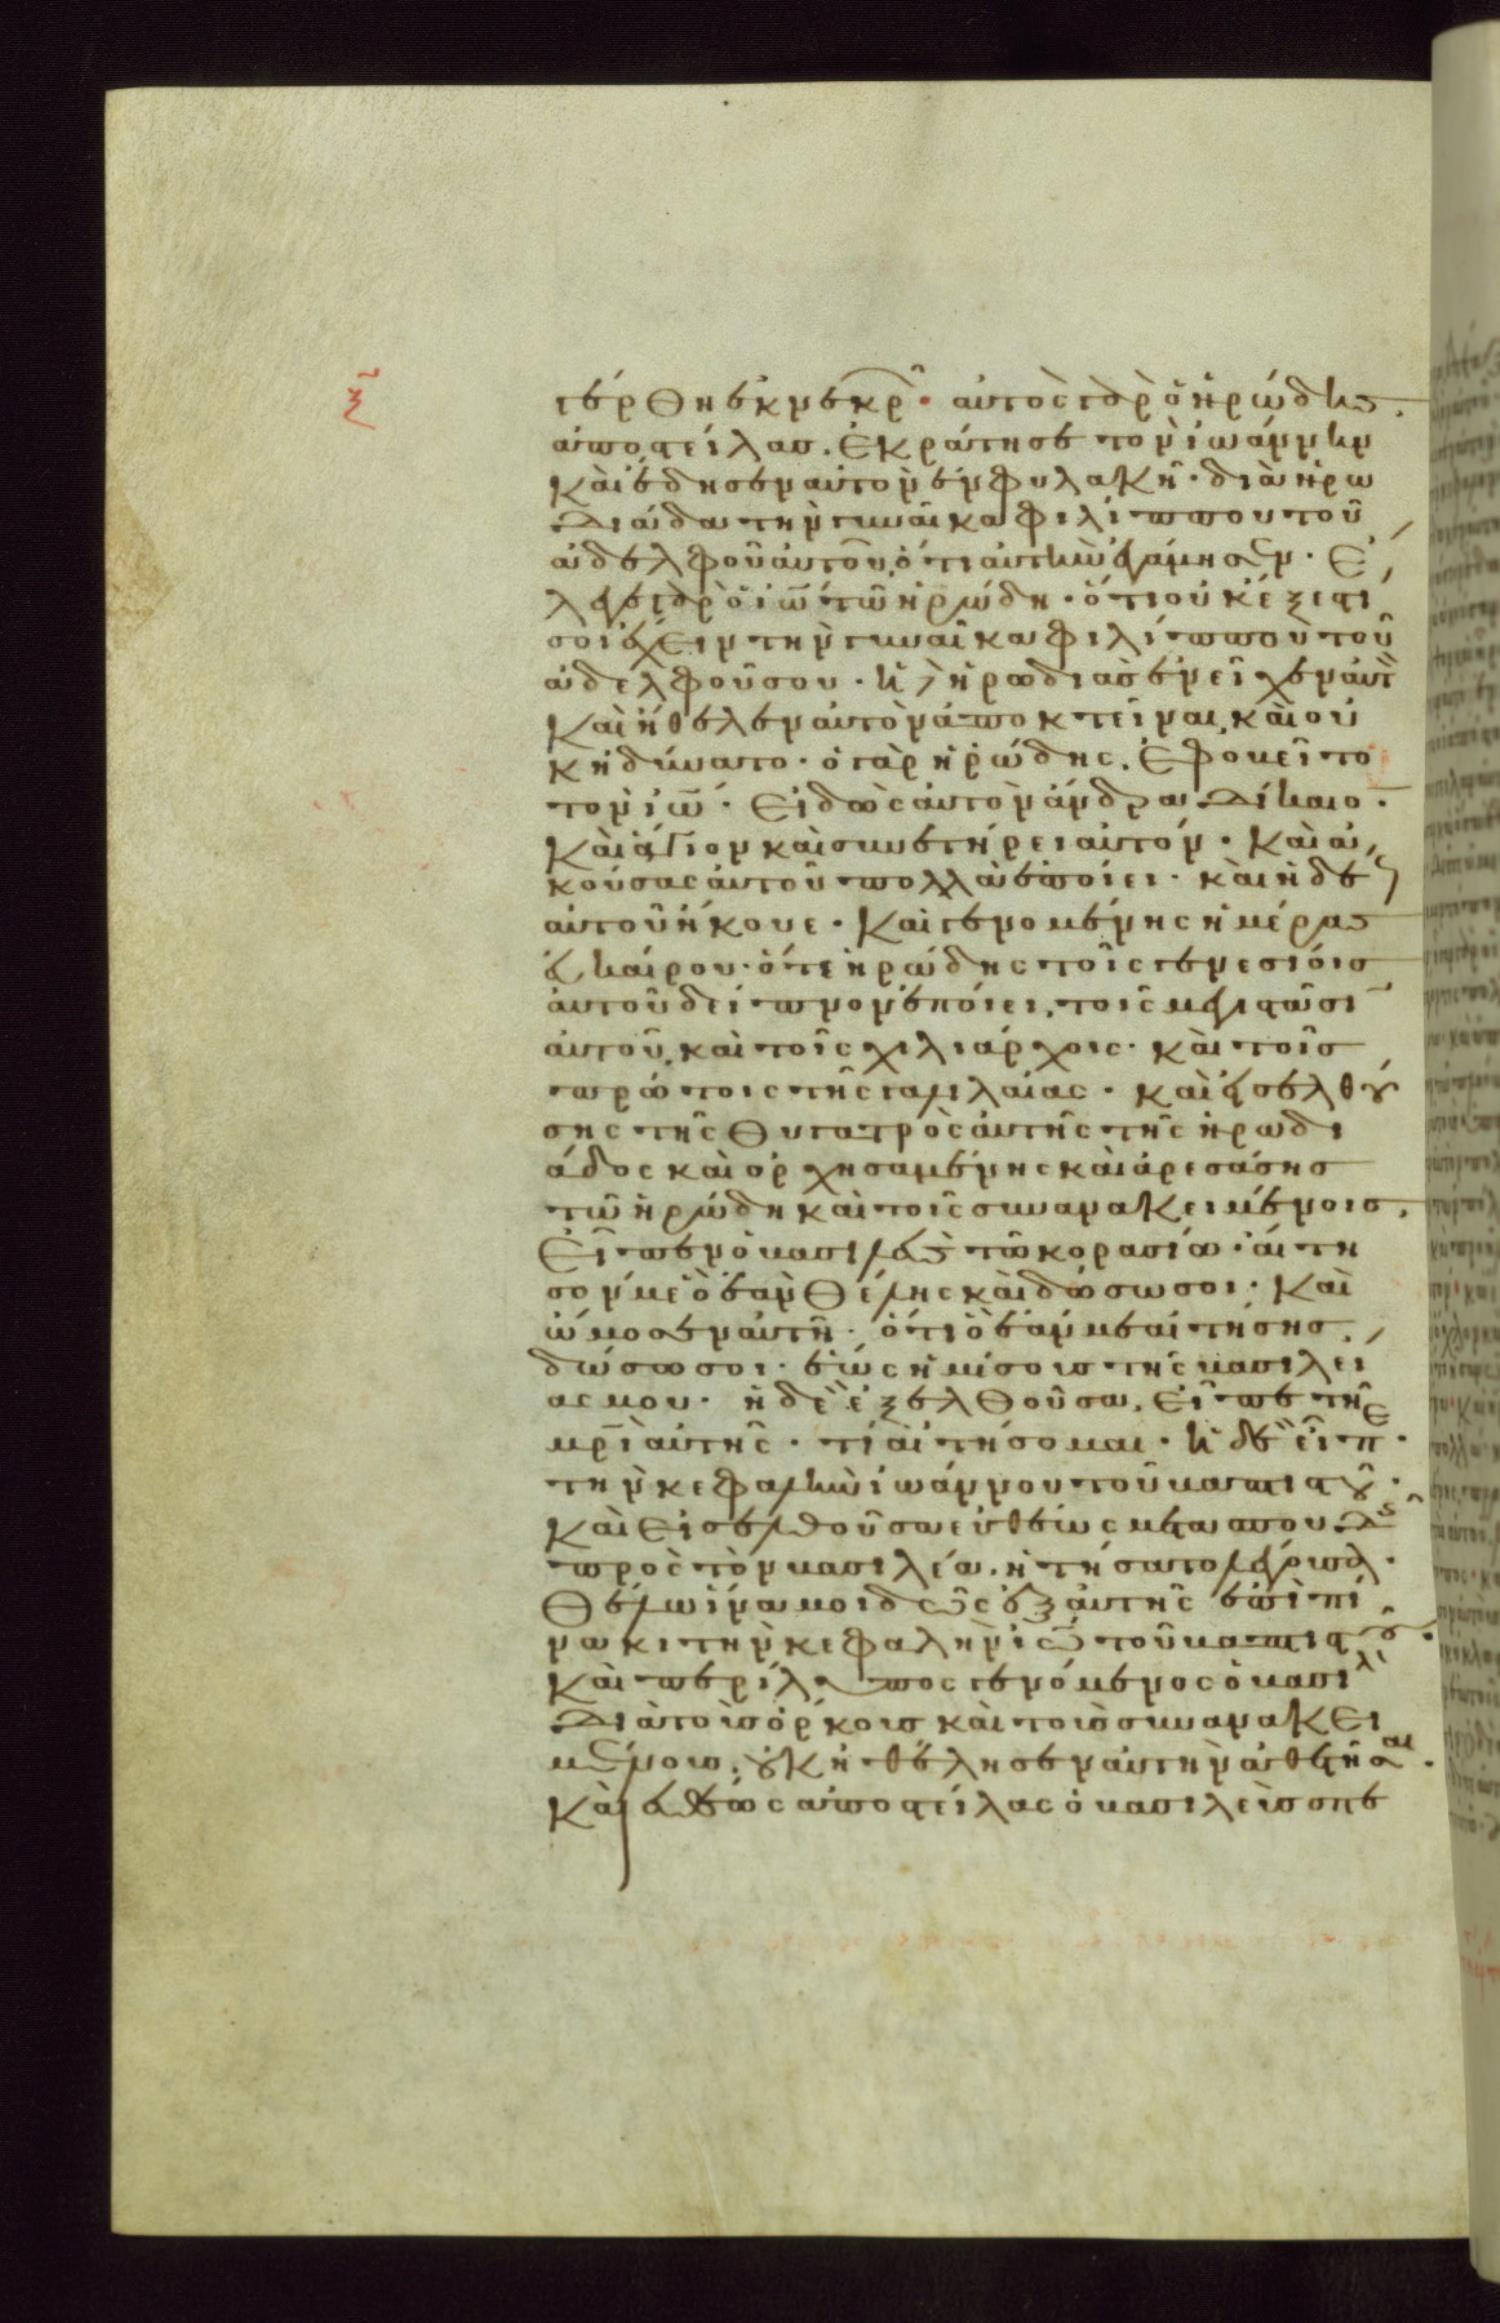 ξ̃
γέρθη ἐκ νεκρ̑· αὐτὸς γὰρ ὁ ἡρώδης.
ἀποστείλας. ἐκράτησε τὸν ἰωάννην
καὶ ἔδησεν αὐτὸν ἐν φυλακῆ· διὰ ἡρω
διάδα τὴν γυναῖκα φιλίππου τοῦ
ἀδελφοῦ αὐτοῦ, ὅτι αὐτὴν ἐγάμησεν· ἔ
λεγε γὰρ ὁ ἰω̅ τῶ ἡρώδη· ὅτι οὐκ ἔξεστι
σοι ἔχειν τὴν γυναῖκα φιλίππου τοῦ
ἀδελφοῦ σου· ἡ δὲ ἡρωδιὰς ἐνεῖχεν αὐτ
καὶ ἤθελεν αὐτὸν ἀποκτεῖναι, καὶ οὐ
κ ἠδύνατο· ὁ γὰρ ἡρώδης. ἐφοβεῖτο
τὸν ἰω̅· εἰδὼς αὐτὸν ἄνδρα δίκαιο̅·
καὶ ἅγιον καὶ συνετήρει αὐτόν· καὶ ἀ
κούσας αὐτοῦ πολλὰ ἐποίει· καὶ ἡδέ
αὐτοῦ ἤκουε· καὶ γενομένης ἡμέρας
εὐκαίρου· ὅτε ἡρώδης τοῖς γενεσίοις
αὐτοῦ δείπνον ἐποίει, τοῖς μεγιστᾶσι
αὐτοῦ, καὶ τοῖς χιλιάρχοις· καὶ τοῖς
πρώτοις τῆς γαλιλαίας· καὶ εἰσελθού
σης τῆς θυγατρὸς αὐτῆς τῆς ἡρωδι
άδος καὶ ὀρχησαμένης καὶ ἀρεσάσης
τῶ ἡρώδη καὶ τοῖς συνανακειμένοις.
εἶπεν ὁ βασιλεὺς τῶ κορασίω· αἴτη
σον με ὃ ἐὰν θέλης καὶ δώσω σοι· καὶ
ὤμοσεν αὐτῆ· ὅτι ὃ ἐάν με αἰτήσης.
δώσω σοι· ἕως ἡμίσοις τῆς βασιλεί
ας μου· ἡ δὲ ἐξελθοῦσα, εἶπε τῆ
μρ̅ὶ αὐτῆς· τί αἰτήσομαι· ἡ δὲ εἶπε·
τὴν κεφαλὴν ἰωάννου τοῦ βαπτιστοῦ·
καὶ εἰσελθοῦσα εὐθέως μετα σπουδῆς
πρὸς τὸν βασιλέα· ἠτήσατο λέγουσα·
θέλω ἵνα μοι δῶς ἐξ αὐτῆς ἐπὶ πί
νακι τὴν κεφαλὴν ἰω̅ τοῦ βαπτιστοῦ·
καὶ περίλυπος γενόμενος ὁ βασιλ
διὰ τοὶς ὅρκοις καὶ τοὶς συνανακει
μένοις, οὐκ ἠθέλησεν αὐτὴν ἀθετῆσαι·
καὶ εὐθέως ἀποστείλας ὁ βασιλεὺς σπε